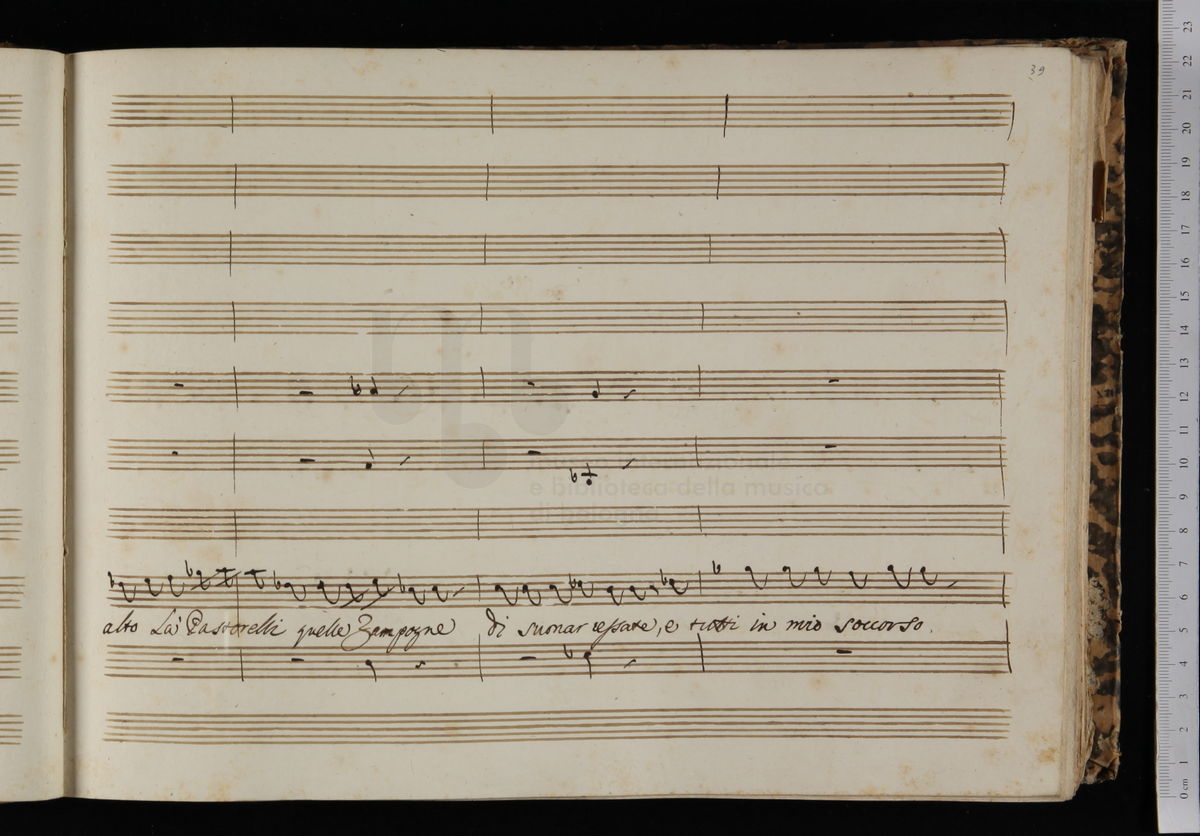 39
alto Là Pastorelli quelle Zampogne di suonar cessate, e tutti in mio soccorso.
e biblioteca della musica
0 cm 1 2 3 4 5 6 7 8 9 10 11 12 13 14 15 16 17 18 19 20 21 22 23